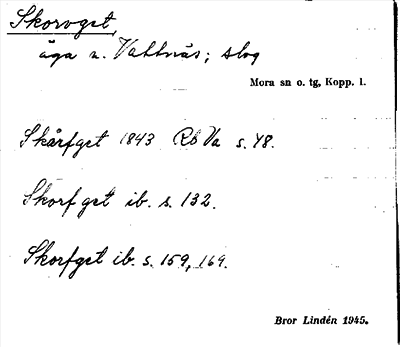 Skorvget,
äga n. Vattnäs; slog
Mora sn o. tg, Kopp. l.
Skårfget 1843 Rb Va s. 48.
Skorfget ib. s. 132.
Skorfget ib. s. 159, 169.
Bror Lindén 1945.